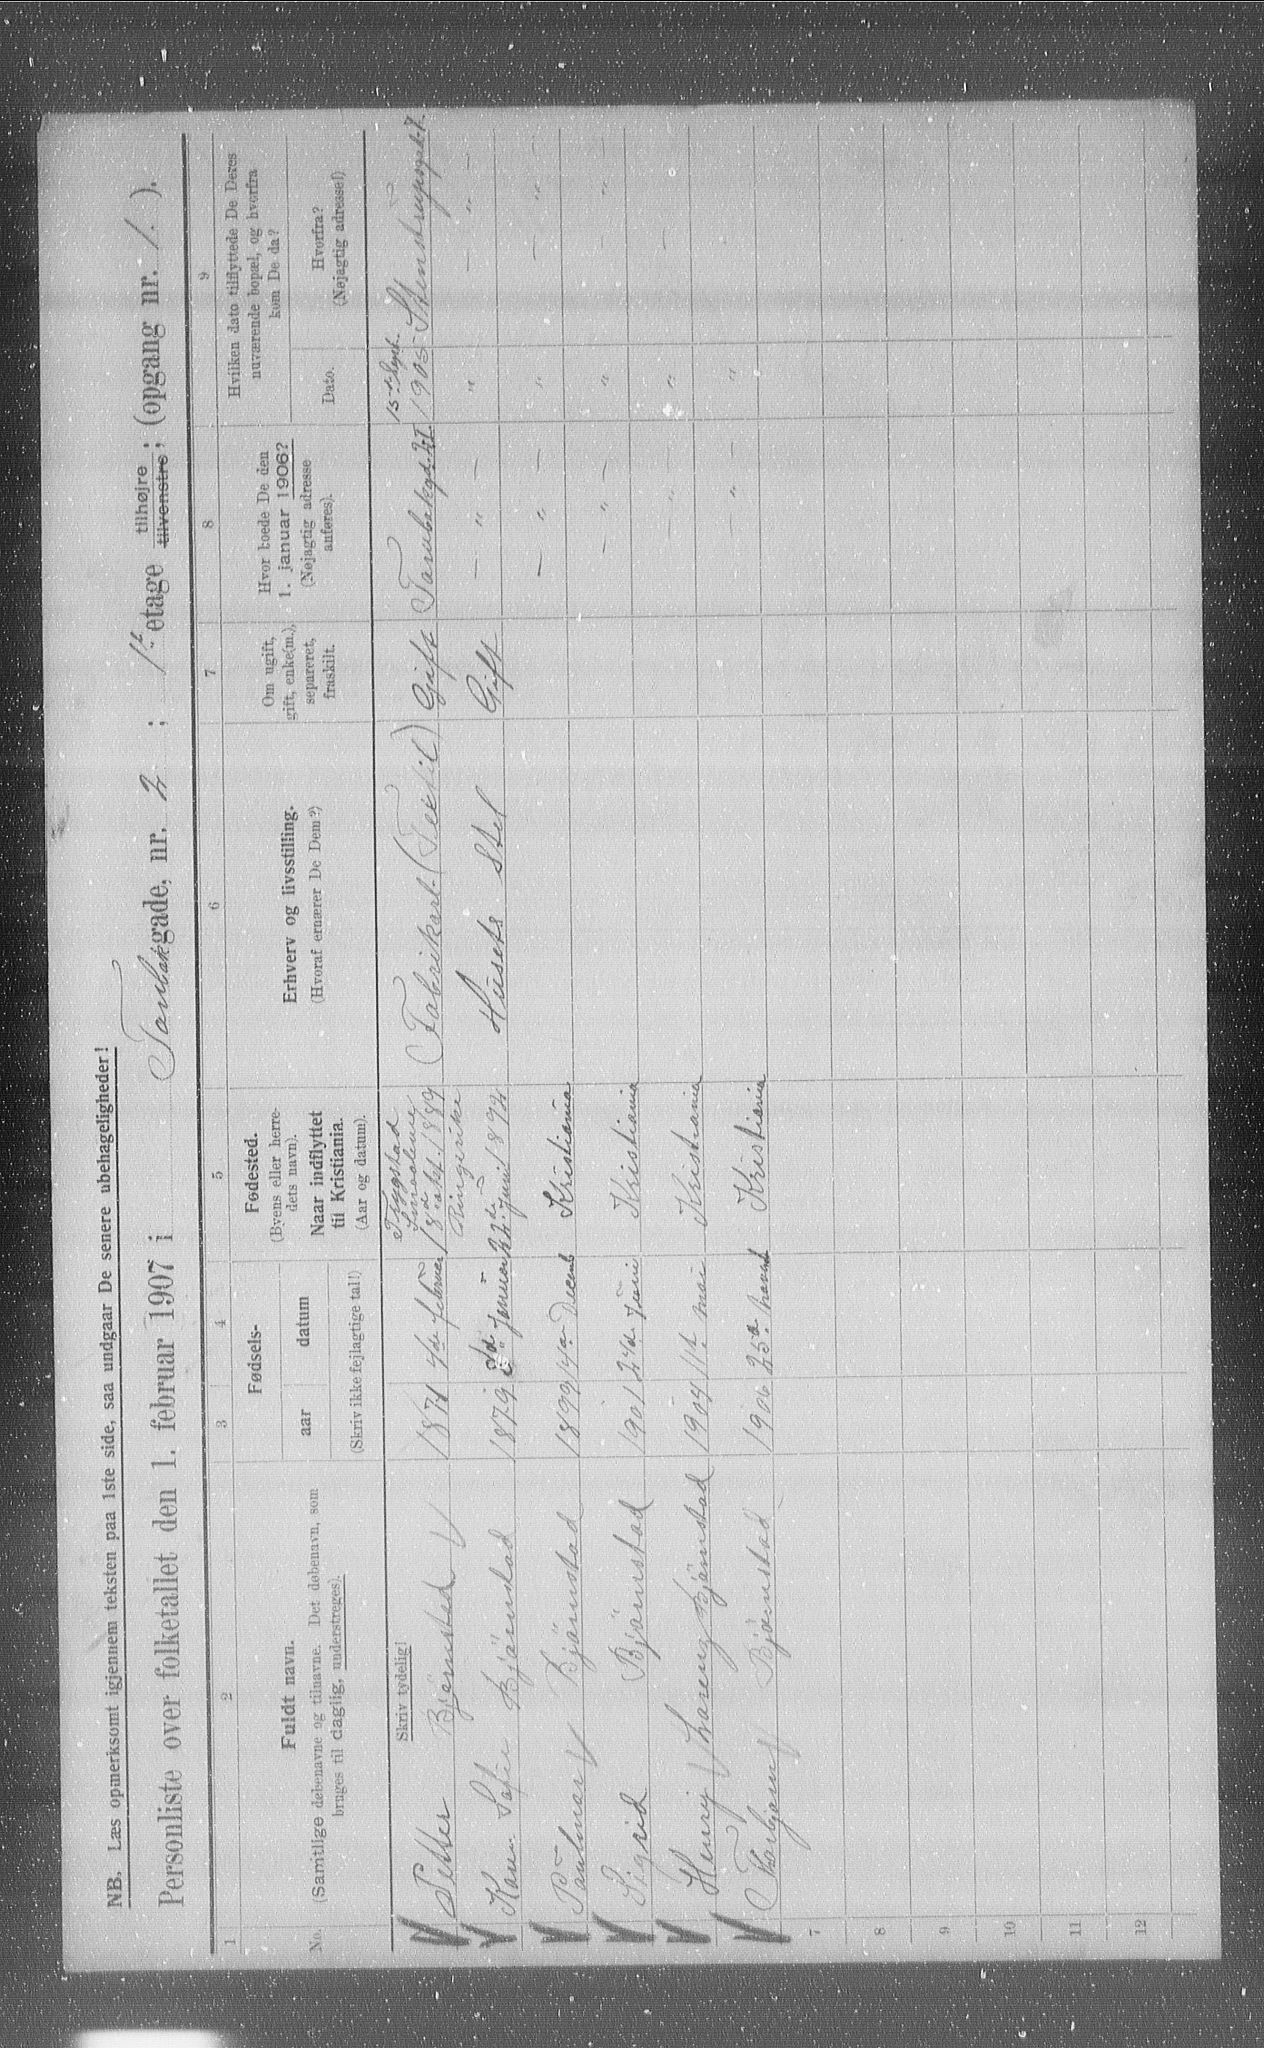 NB. Læs opmerksomt igjennem teksten paa 1ste side, saa undgaar De senere ubehageligheder!
Personliste over folketallet den 1. februar 1907 i Tombakgade, nr. 2; 1 etage tilhøjre tilvenstre; (opgang nr. 1.).
1 2 3 4 5 6 7 8 9
No.
Fuldt navn.
(Samtlige døbenavne og tilnavne. Det døbenavn, som
bruges til daglig, understreges).
Fødsels-
aar datum
(Skriv ikke fejlagtige tal!)
Fødested.
(Byens eller herre-
dets navn).
Naar indflyttet
til Kristiania.
(Aar og datum).
Erhverv og livsstilling.
(Hvoraf ernærer De Dem?)
Om ugift,
gift, enke(m.),
separeret,
fraskilt.
Hvor boede De den
1. januar 1906?
(Nøjagtig adresse
anføres).
Hvilken dato tilflyttede De Deres
nuværende bopæl, og hvorfra
kom De da?
Dato.
Hvorfra?
(Nøjagtig adresse!)
Skriv tydelig!
Petter Björnstad 1871 4de februar Smaalenene 1889 Fabrikarb. (Textil) Gift Tombakgd. 2 I 1905 Stenstrupsgd. 7.
Karen Sofie Björnstad 1879 Januar Ringerike 22de Juni 1894 Husets Stel Gift — " — " — " —
Paulmar Björnstad 1899 14de Decemb Kristiania — " — " — " —
Sigrid Björnstad 1901 2den Juni Kristiania — " — " — " —
Henry Lorenz Björnstad 1904 11te mai Kristiania — " — " —
Thorbjørn Björnstad 1906 25de Kristiania " — "
7
8
9
10
11
12